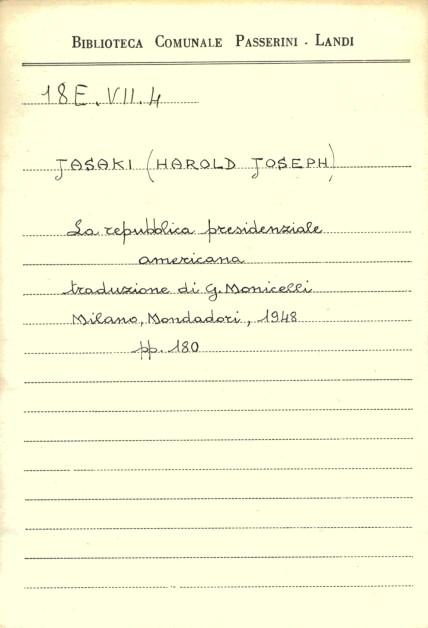 BIBLIOTECA COMUNALE PASSERINI - LANDI
18E.VII.4
JASAKI (HAROLD JOSEPH)
La repubblica presidenziale
americana
traduzione di G. Monicelli
Milano, Mondadori, 1948
pp. 180